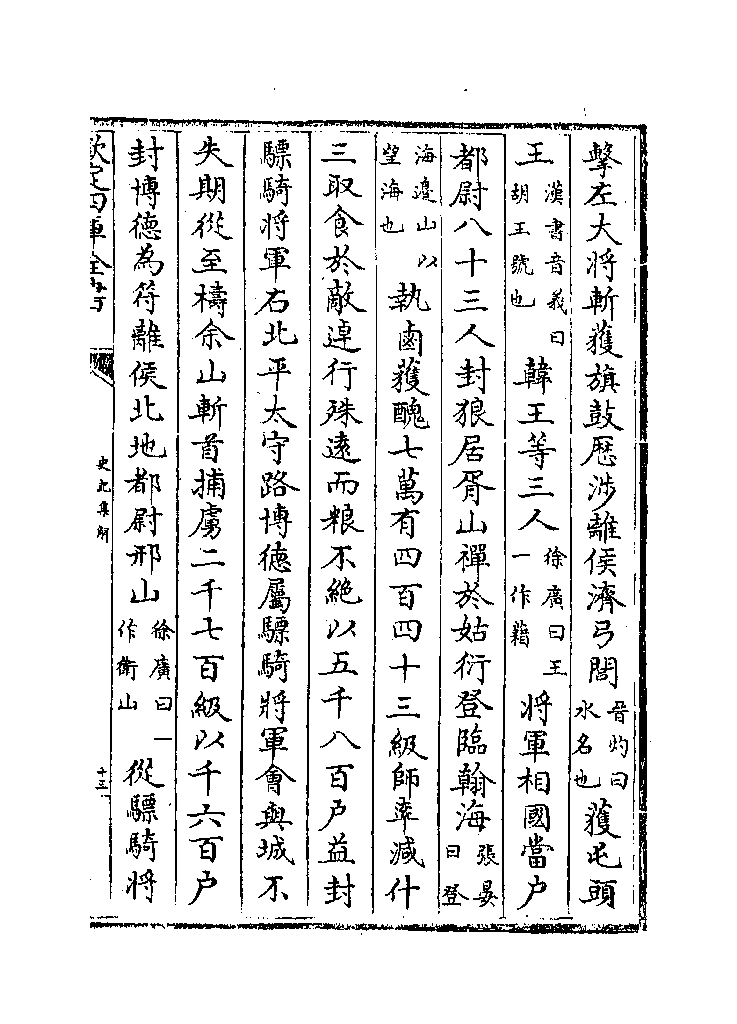 擊左大將斬獲旗鼓歷涉離侯濟弓閭晉灼曰水名也獲屯頭
王漢書音義曰胡王號也韓王等三人徐廣曰王一作藉將軍相國當户
都尉八十三人封狼居胥山禪於姑衍登臨翰海張晏曰登
海邊山以望海也執鹵獲醜七萬有四百四十三級師率減什
三取食於敵逴行殊逺而粮不絶以五千八百户益封
驃騎將軍右北平太守路博德屬驃騎將軍會與城不
失期從至檮余山斬首捕虜二千七百級以千六百户
封博德為符離侯北地都尉邢山徐廣曰一作衛山從驃騎將
欽定四庫全書
史記集解
十三